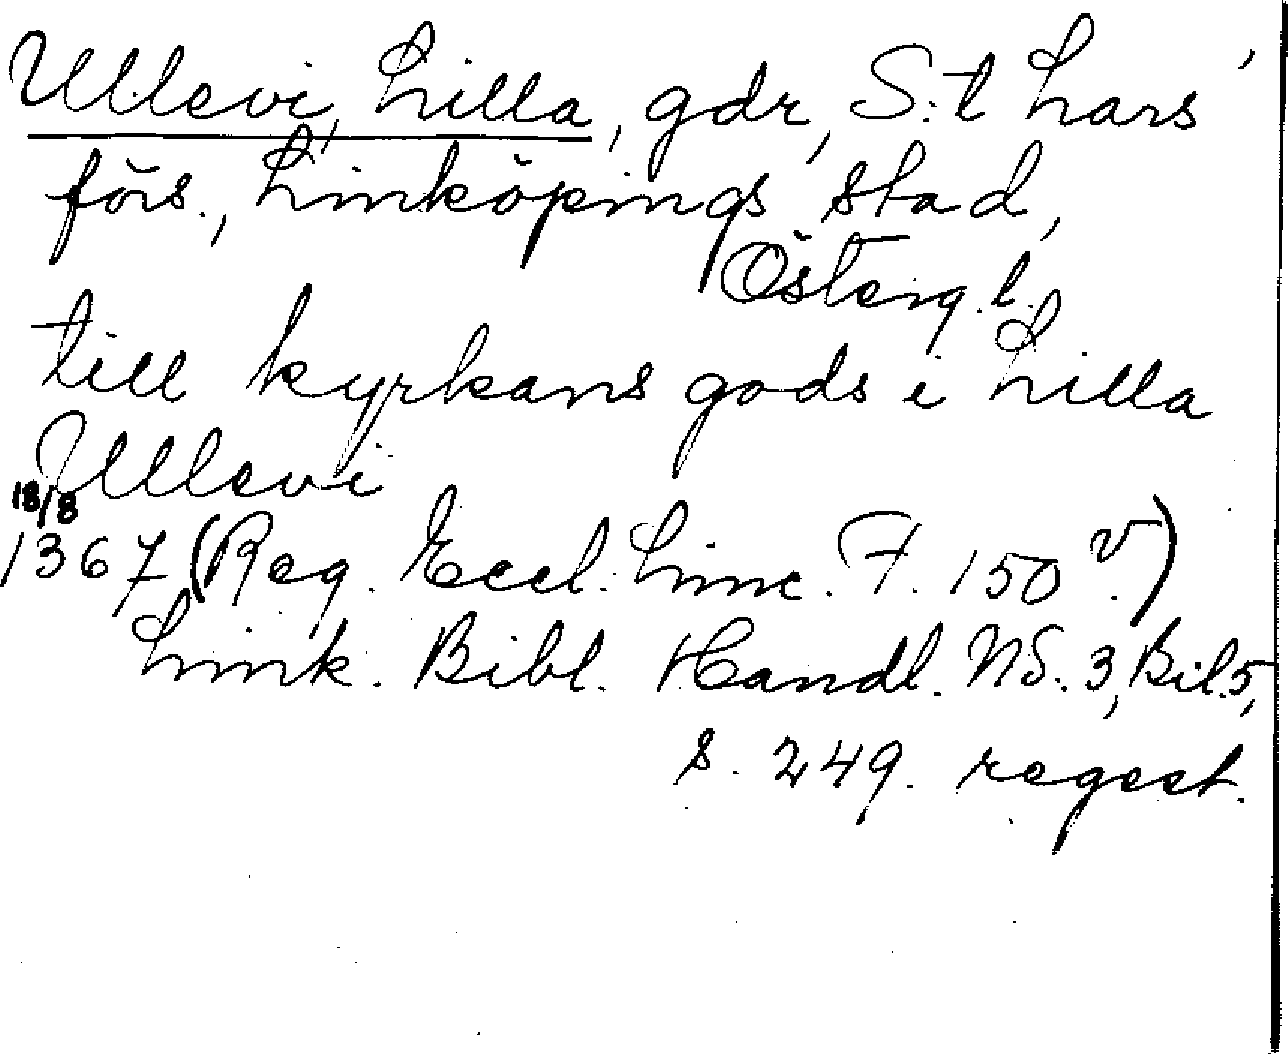 Ullevi, Lilla, gdr, S:t Lars
förs., Linköpings stad,
Österg. l.
till kyrkans gods i Lilla
Ullevi
18/8
1367 (Reg. Eccl. Linc. F. 150 v.)
Link. Bibl. Handl. NS. 3, Bil. 5,
s. 249. regest.